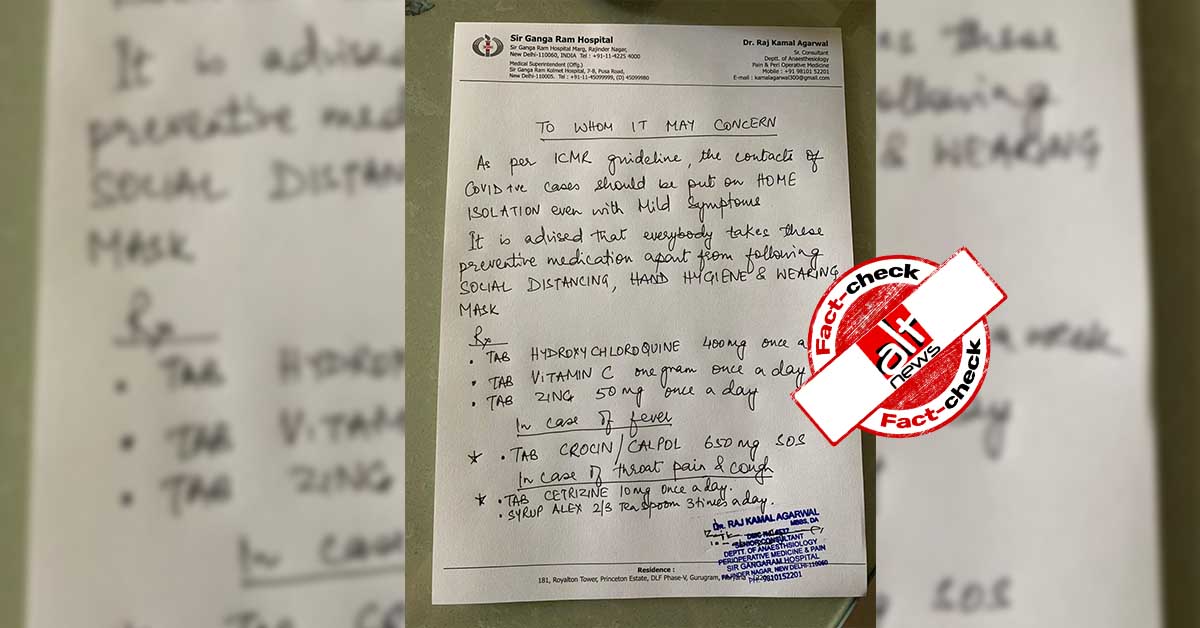 Sir Ganga Ram Hospital
Sir Ganga Ram Hospital Marg, Rajinder Nagar,
New Delhi-110060, INDIA Tel : +91-11-4225 4000
Medical Superintendent (Offg.)
Sir Ganga Ram Kolmet Hospital, 7-B, Pusa Road,
New Delhi-110005. Tel : +91-11-45099999, (D) 45099980
Dr. Raj Kamal Agarwal
Sr. Consultant
Deptt. of Anaesthesiology
Pain & Peri Operative Medicine
Mobile : +91 98101 52201
E-mail : kamalagarwal300@gmail.com
TO WHOM IT MAY CONCERN
As per ICMR guideline, the contacts of
COVID +ve cases should be put on HOME
ISOLATION even with Mild Symptoms
It is advised that everybody takes these
preventive medication apart from following
SOCIAL DISTANCING, HAND HYGIENE & WEARING
MASK
Rx
• TAB HYDROXYCHLOROQUINE 400mg once a
• TAB VITAMIN C one gram once a day
• TAB ZING 50mg once a day
In case of fever
• TAB CROCIN/CALPOL 650mg SOS
In case of throat pain & cough
• TAB CETRIZINE 10mg once a day.
• SYRUP ALEX 2/3 Tea spoom 3 times a day.
Dr. RAJ KAMAL AGARWAL
MBBS, DA
SENIOR CONSULTANT
DEPTT. OF ANAESTHSIOLOGY
PERIOPERATIVE MEDICINE & PAIN
SIR GANGARAM HOSPITAL
NEW DELHI-110060
9810152201
Residence :
181, Royalton Tower, Princeton Estate, DLF Phase-V, Gurugram,
Fact-check
alt
news
Fact-check